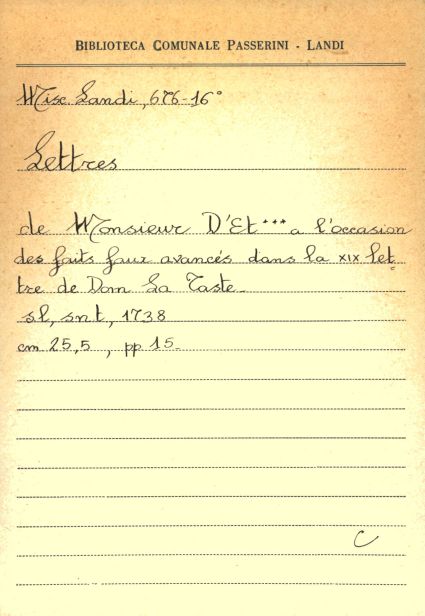 BIBLIOTECA COMUNALE PASSERINI - LANDI
Misc. Landi, 676-16°
Lettres
de Monsieur D'Et*** a l'occasion
des faits faux avancés dans la XIX let
tre de Dom La Taste.
sl, snt, 1738
cm 25,5, pp 15.
C